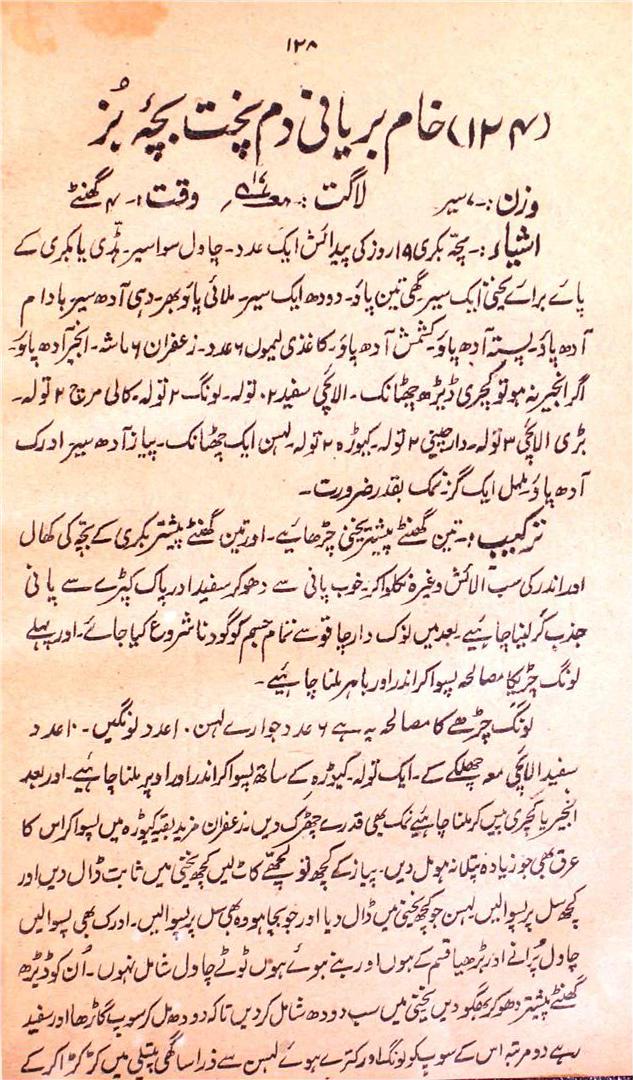 ۱۲۸
(۱۲۴) خام بریانی دم پخت بچۂ بُز
وزن :۔ ۷ سیر لاگت :۔ وقت :۔ ۴ گھنٹے
اشیاء :۔ بچّہ بکری ۱۹ روز کی پیدائش ایک عدد۔ چاول سوا سیر۔ ہڈّی یا بکری کے
پائے برائے یخنی ایک سیر گھی تین پاؤ۔ دودھ ایک سیر۔ ملائی پاؤ بھر۔ دہی آدھ سیر۔ بادام
آدھ پاؤ۔ پستہ آدھ پاؤ۔ کشمش آدھ پاؤ۔ کاغذی لیموں ۶ عدد۔ زعفران ۶ ماشہ۔ انجیر آدھ پاؤ۔
اگر انجیر نہ ہو تو کچری ڈیڑھ چھٹانک۔ الائچی سفید ۲ تولہ۔ لونگ ۲ تولہ۔ کالی مرچ ۲ تولہ۔
بڑی الائچی ۳ تولہ۔ دارچینی ۲ تولہ۔ کیوڑہ ۲ تولہ۔ لہسن ایک چھٹانک۔ پیاز آدھ سیر۔ ادرک
آدھ پاؤ۔ ململ ایک گز۔ نمک بقدر ضرورت۔
ترکیب :۔ تین گھنٹے پیشتر یخنی چڑھائیے۔ اور تین گھنٹے پیشتر بکری کے بچّہ کی کھال
اور اندر کی سب الائش وغیرہ نکلوا کر۔ خوب پانی سے دھو کر سفید اور پاک کپڑے سے پانی
جذب کر لینا چاہئیے۔ بعد میں نوک دار چاقو سے تمام جسم کو گودنا شروع کیا جائے۔ اور پہلے
لونگ چڑیکا مصالحہ پسوا کر اندر اور باہر ملنا چاہئیے۔
لونگ چڑھے کا مصالحہ یہ ہے ۶ عدد جوارے لہسن ۱۰ عدد لونگیں۔ ۱۰ عدد
سفید الائچی معہ چھلکے کے۔ ایک تولہ۔ کیوڑہ کے ساتھ پسوا کر اندر اور اوپر ملنا چاہئیے۔ اور بعد
انجیر یا کچری پیس کر ملنا چاہئیے نمک بھی قدرے چھڑک دیں۔ زعفران مزید بقیہ کیوڑہ میں پسوا کر اس کا
عرق بھی جو زیادہ پتلا نہ ہو مل دیں۔ پیاز کے کچھ تو لچھّے کاٹ لیں کچھ یخنی میں ثابت ڈال دیں اور
کچھ سل پر پسوالیں۔ لہسن جو کچھ یخنی میں ڈال دیا اور جو بچا ہو وہ بھی سل پر پسوالیں۔ ادرک بھی پسوالیں
چاول پُرانے اور بڑھیا قسم کے ہوں اور بنے ہوئے ہوں ٹوٹے چاول شامل نہوں۔ اُن کو ڈیڑھ
گھنٹے پیشتر دھو کر بھگو دیں۔ یخنی میں سب دودھ شامل کر دیں تاکہ دودھ مل کر سوپ گاڑھا اور سفید
رہے دو مرتبہ اس کے سوپ کو لونگ اور کترے ہوئے لہسن سے ذرا سا گھی پتیلی میں کڑکڑا کر کے